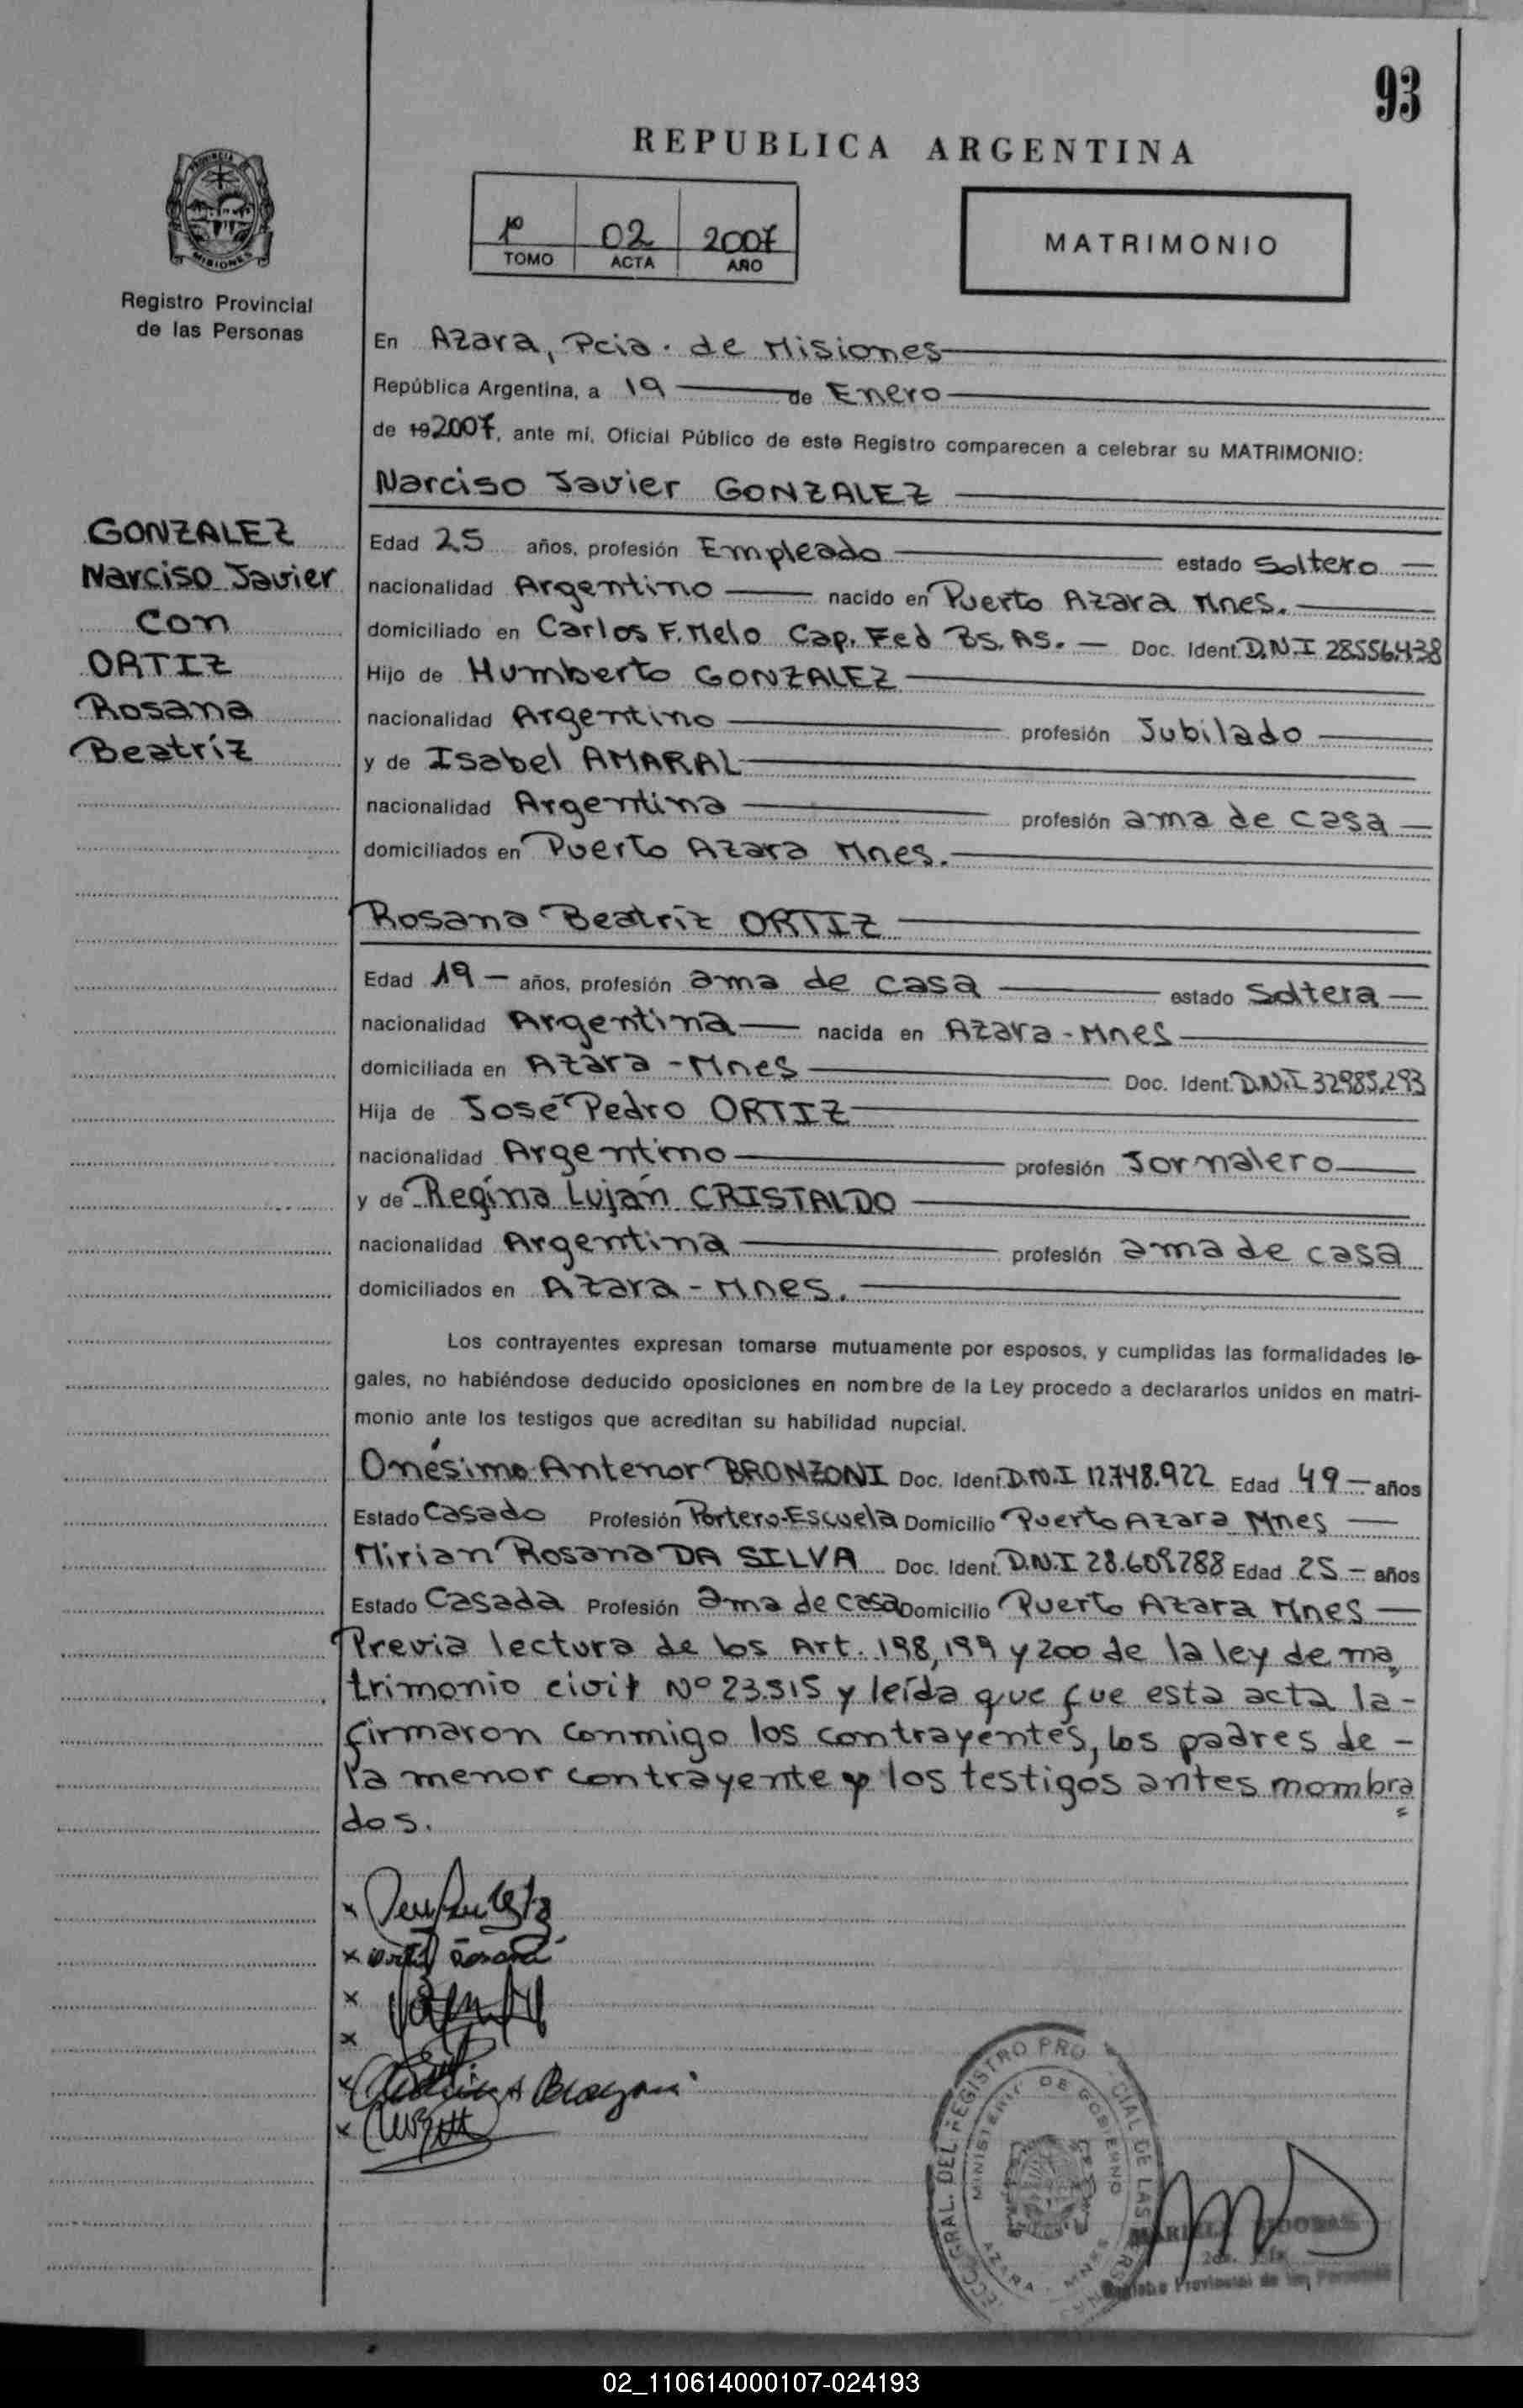 93
REPUBLICA ARGENTINA
PROVINCIA
MISIONES
Registro Provincial
de las Personas
1º 02 2007
TOMO ACTA AÑO
MATRIMONIO
En Azara, Pcia. de Misiones
República Argentina, a 19 de Enero
de 19 2007, ante mí, Oficial Público de este Registro comparecen a celebrar su MATRIMONIO:
Narciso Javier GONZALEZ
GONZALEZ
Narciso Javier
con
ORTIZ
Rosana
Beatríz
Edad 25 años, profesión Empleado estado Soltero
nacionalidad Argentino nacido en Puerto Azara Mnes.
domiciliado en Carlos F. Melo Cap. Fed Bs. As. Doc. Ident. D.N.I 28.556.438
Hijo de Humberto GONZALEZ
nacionalidad Argentino profesión Jubilado
y de Isabel AMARAL
nacionalidad Argentina profesión ama de casa
domiciliados en Puerto Azara Mnes.
Rosana Beatriz ORTIZ
Edad 19 años, profesión ama de casa estado Soltera
nacionalidad Argentina nacida en Azara - Mnes
domiciliada en Azara - Mnes Doc. Ident. D.N.I 32.985.293
Hija de José Pedro ORTIZ
nacionalidad Argentino profesión Jornalero
y de Regina Luján CRISTALDO
nacionalidad Argentina profesión ama de casa
domiciliados en Azara - Mnes.
Los contrayentes expresan tomarse mutuamente por esposos, y cumplidas las formalidades le-
gales, no habiéndose deducido oposiciones en nombre de la Ley procedo a declararlos unidos en matri-
monio ante los testigos que acreditan su habilidad nupcial.
Onésimo Antenor BRONZONI Doc. Ident. D.N.I 12.748.922 Edad 49 años
Estado Casado Profesión Portero-Escuela Domicilio Puerto Azara Mnes
Mirian Rosana DA SILVA Doc. Ident. D.N.I 28.609.288 Edad 25 años
Estado Casada Profesión ama de casa Domicilio Puerto Azara Mnes
Previa lectura de los Art. 198, 199 y 200 de la ley de ma
trimonio civil Nº 23.515 y leída que fue esta acta la -
firmaron conmigo los contrayentes, los padres de -
la menor contrayente y los testigos antes mombra
dos.
GRAL. DEL REGISTRO PRO CIAL DE LAS
MINISTERIO DE GOBIERNO
AZARA - MNES
Registro Provincial de las Personas
02_110614000107-024193